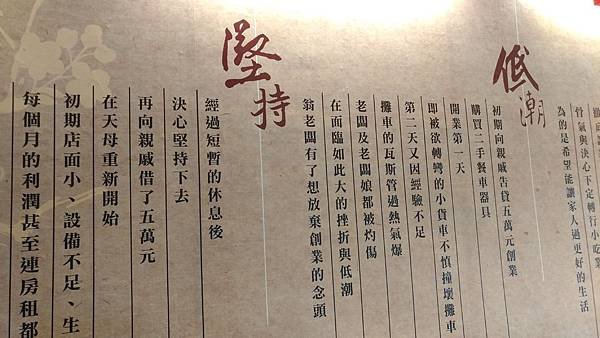 骨氣與決心下定轉行小吃業
為的是希望能讓家人過更好的生活
低潮
初期向親戚告貸五萬元創業
購買二手餐車器具
開業第一天
即被欲轉彎的小貨車不慎撞壞攤車
第二天又因經驗不足
攤車的瓦斯管過熱氣爆
老闆及老闆娘都被灼傷
在面臨如此大的挫折與低潮
翁老闆有了想放棄創業的念頭
堅持
經過短暫的休息後
決心堅持下去
再向親戚借了五萬元
在天母重新開始
初期店面小、設備不足、生
每個月的利潤甚至連房租都